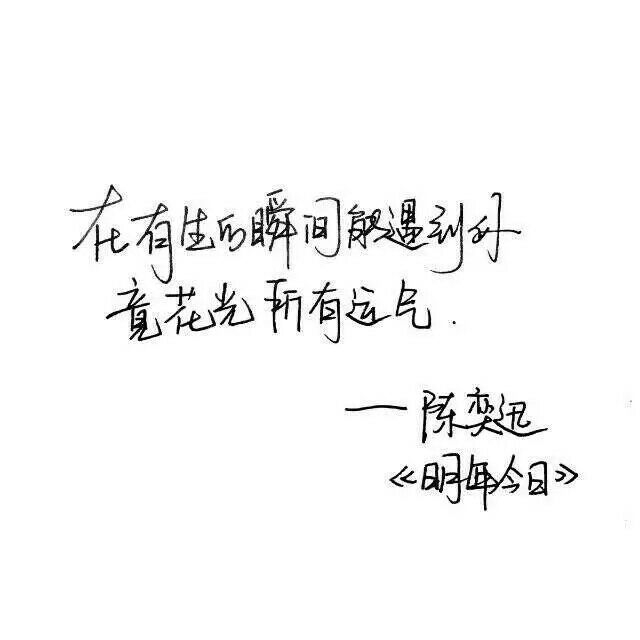 在有生的瞬间能遇到你
竟花光所有运气.
——陈奕迅
《明年今日》